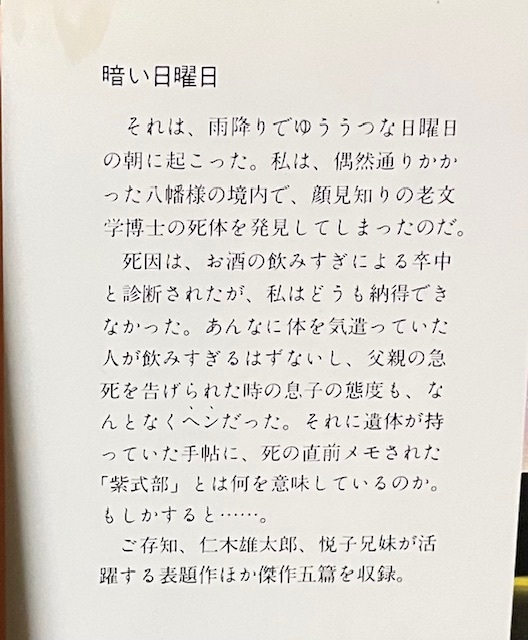 暗い日曜日
それは、雨降りでゆううつな日曜日
の朝に起こった。私は、偶然通りかか
った八幡様の境内で、顔見知りの老文
学博士の死体を発見してしまったのだ。
死因は、お酒の飲みすぎによる卒中
と診断されたが、私はどうも納得でき
なかった。あんなに体を気遣っていた
人が飲みすぎるはずないし、父親の急
死を告げられた時の息子の態度も、な
んとなくヘンだった。それに遺体が持
っていた手帖に、死の直前メモされた
「紫式部」とは何を意味しているのか。
もしかすると……。
ご存知、仁木雄太郎、悦子兄妹が活
躍する表題作ほか傑作五篇を収録。